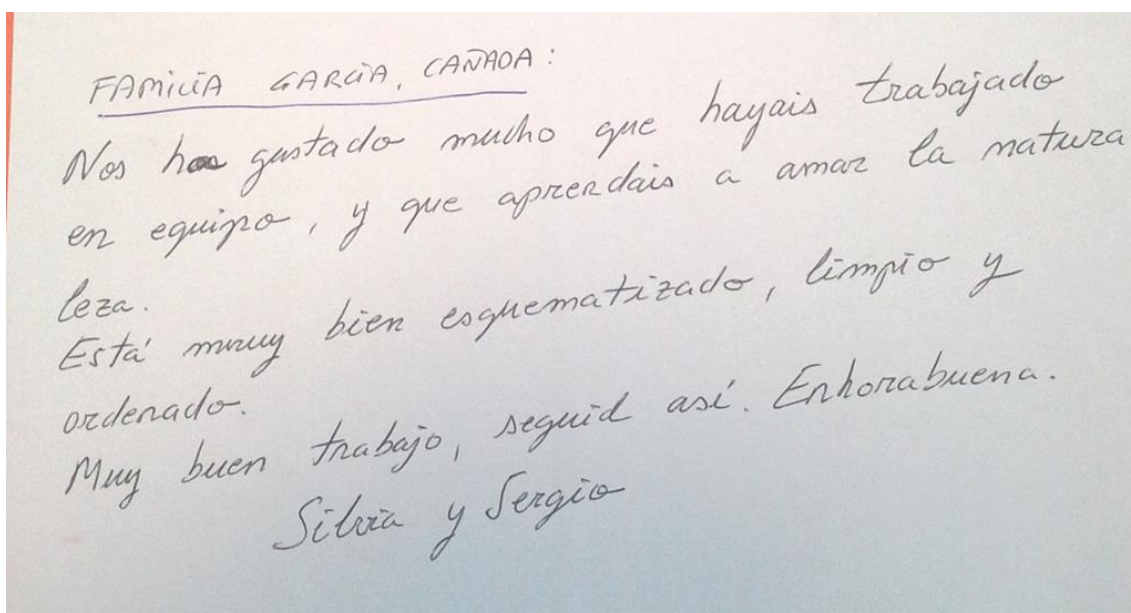 FAMILIA GARCÍA, CAÑADA:
Nos ha gustado mucho que hayais trabajado
en equipo, y que aprendais a amar la natura
leza.
Está muy bien esquematizado, limpio y
ordenado.
Muy buen trabajo, seguid así. Enhorabuena.
Silvia y Sergio